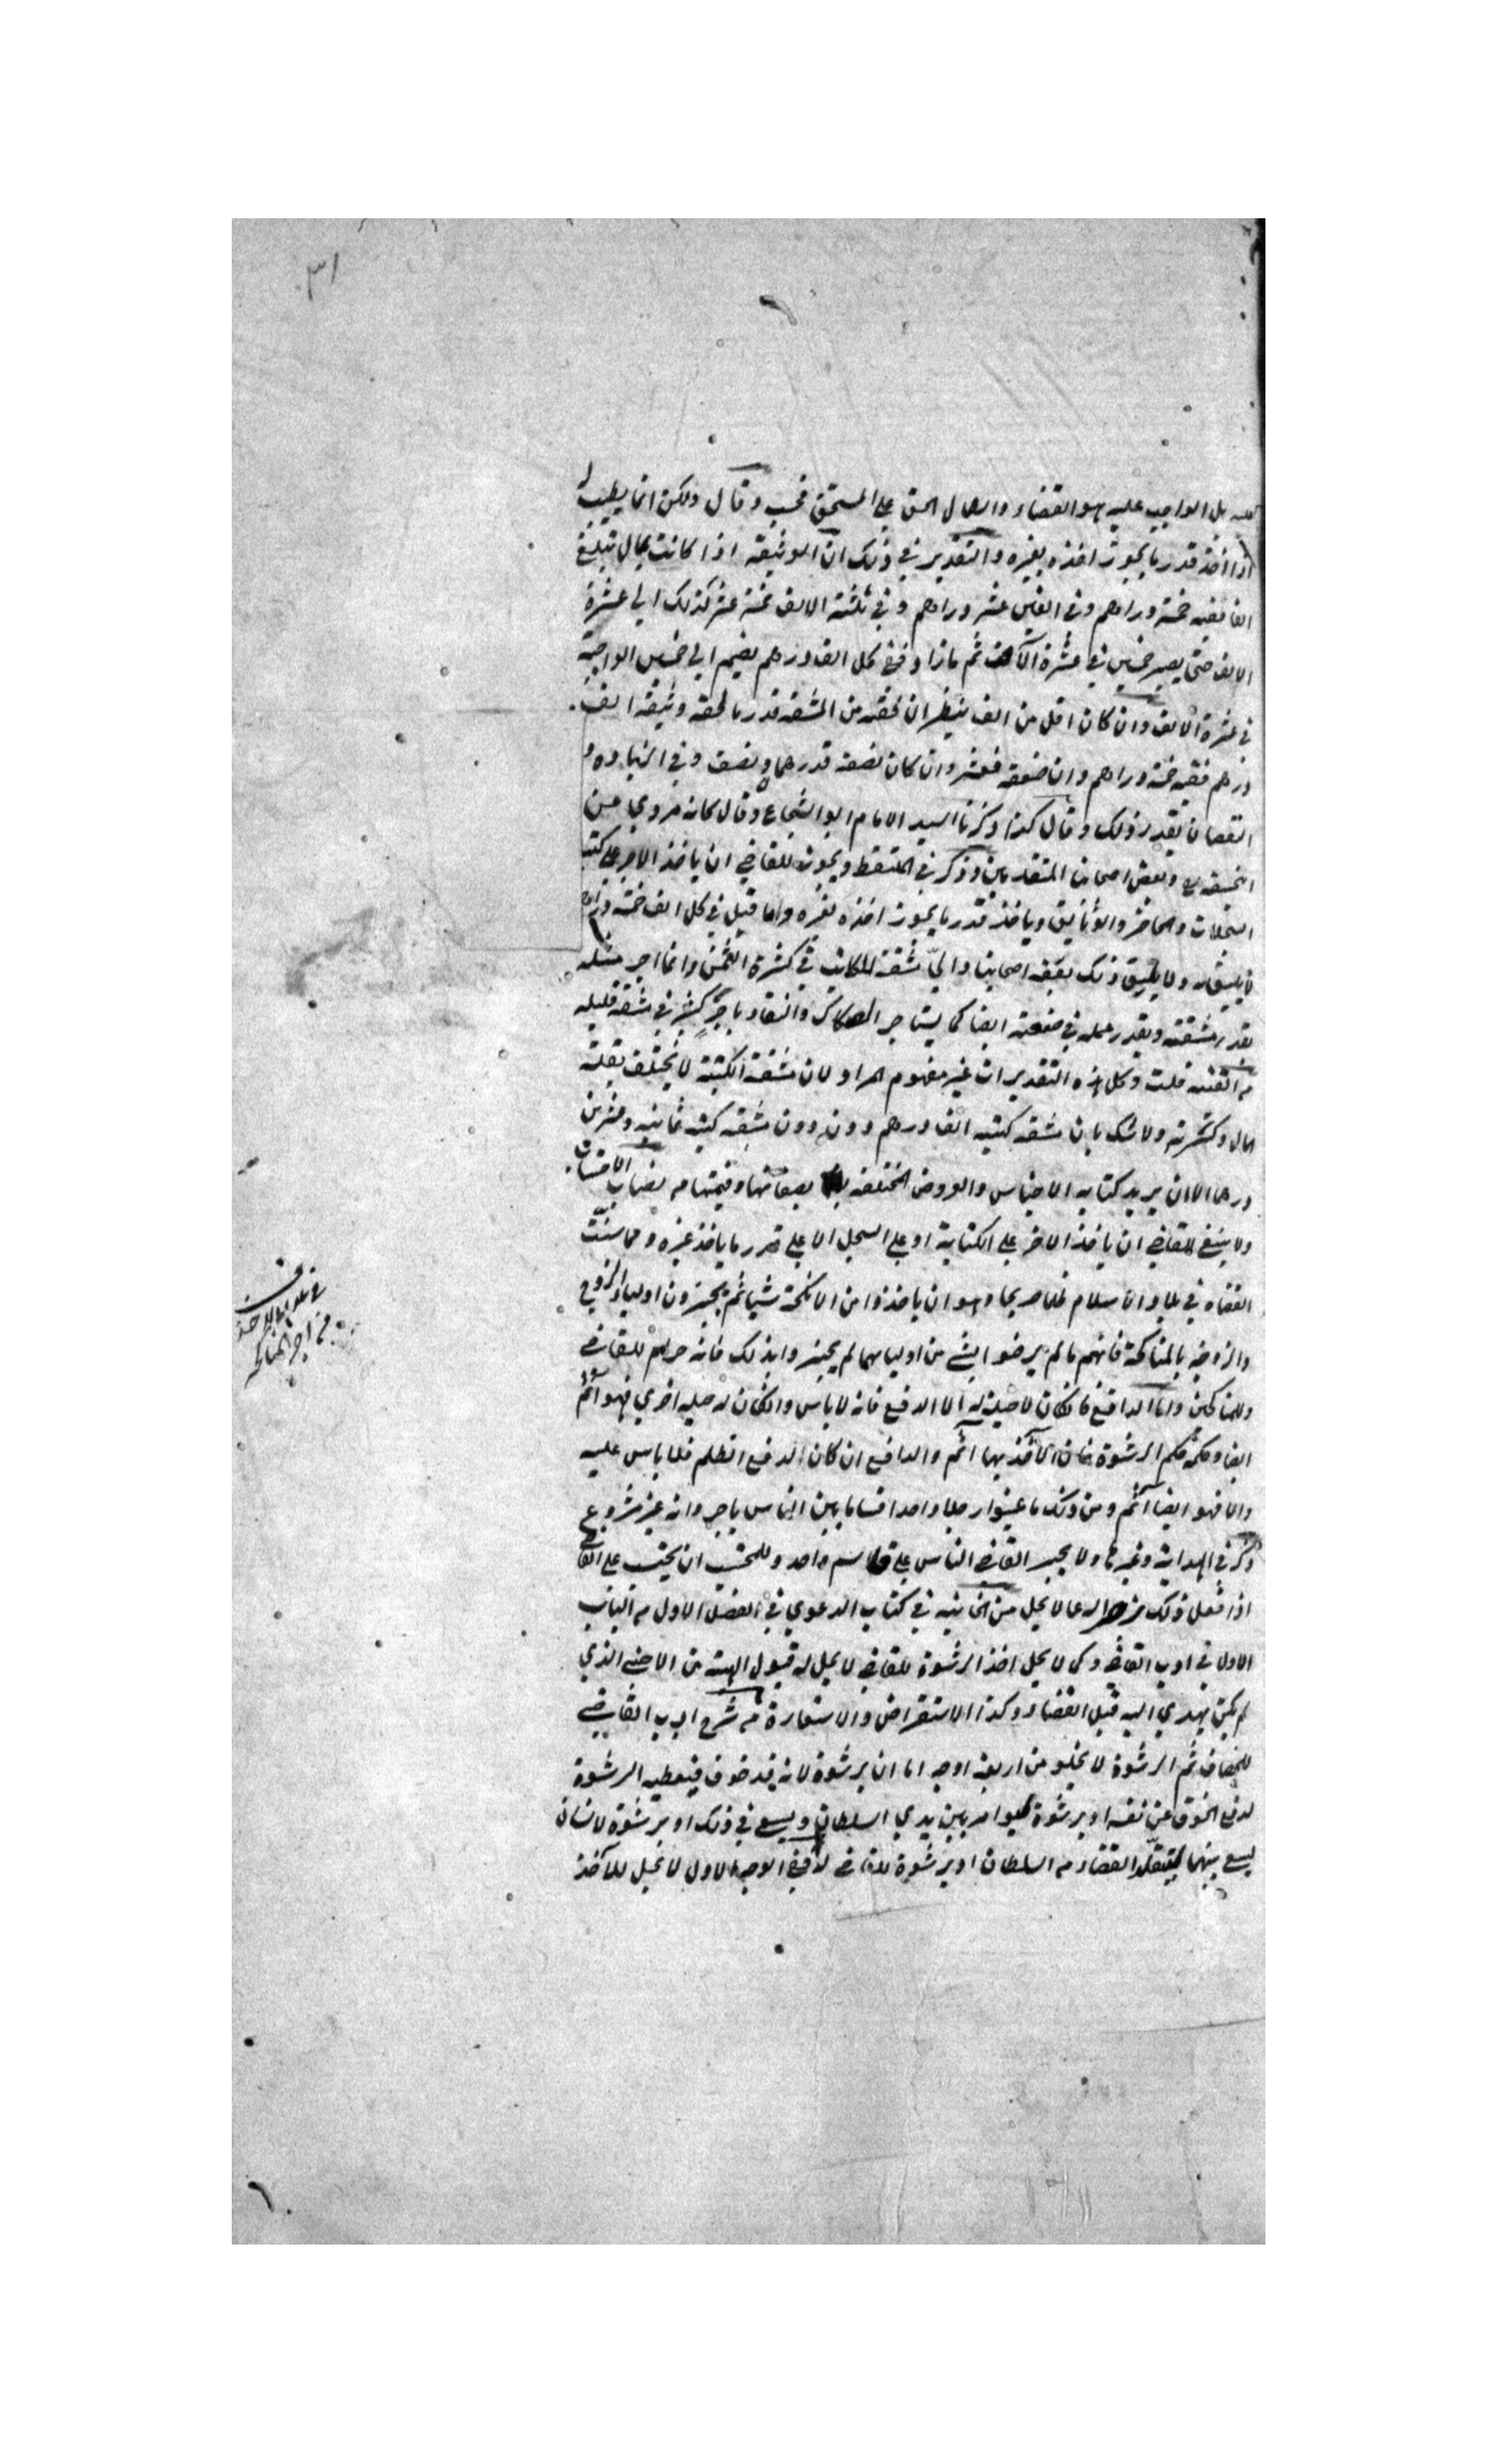 ٣١
عليه بل الواجب عليه هو القضاء وايصال الحق على المستحق فحسب وقال ولكن انما يطيب له
اذا اخذ قدر ما يجوز اخذه بغيره والتقدير في ذلك ان الوثيقة اذا كانت بمال تبلغ
الفا ففيه خمسة دراهم وفي الفين عشر دراهم وفي ثلثة الالاف خمسة عشر كذلك الى عشرة
الالاف حتى يصير خمسين في عشرة الآلاف ثم ما زاد ففي كل الف درهم يضم الى خمسين الواجبة
في عشرة الالاف وان كان اقل من الف ينظر ان لحقه من المشقة قدر ما لحقه وثيقة الف
درهم ففيه خمسة دراهم وان ضعفه فعشر وان كان نصفه فدرهما ونصف وفي الزيادة و
النقصان يقدر ذلك وقال كذا ذكرنا السيد الامام ابو الشجاع وقال كانه مروي عن
ابي حنيفة وبعض اصحابنا المتقدمين وذكر في الملتقط ويجوز للقاضي ان ياخذ الاجر على كتبه
السجلات والمحاضر والوثايق وياخذ قدر ما يجوز اخذه لغيره وما قيل في كل الف خمسة دراهم
لا يليق ذلك بفقه اصحابنا واي مشقة للكاتب في كثرة الثمن وانما اجر مثله
بقدر مشقته وبقدر عمله في صنعته ايضا كما يستاجر الصكاك والنقاد باجر كثير في مشقة قليلة
من القنية قلت وكل هذه التقديرات غير مفهوم المراد لان مشقة الكتبة لا يختلف بقلة
المال وكثرته ولا شك بان مشقة كتبه الف درهم دون دون مشقة كتبه ثمانية وعشرين
درهما الا ان يريد كتابه الاجناس والعروض المختلفة بصفاتها وقيمتها من نصاب الاحتساب
ولا ينبغي للقاضي ان ياخذ الاجر على الكتابة او على السجل الا على قدر ما ياخذ غيره ومما سنت
القضاة في بلاد الاسلام ظلما صريحا وهو ان ياخذوا من الانكحة شيا ثم يجيزون اولياء الزوج
والزوجة بالمناكحة فانهم ما لم يرضوا بشئ من اوليائهما لم يجيزوا بذلك فانه حرام للقاضي
وللمناكح واما الدافع فان كان لا حيلة له الا الدفع فانه لا باس وان كان له حيلة اخرى فهو اثم
ايضا وحكمه حكم الرشوة فان الاخذ بها اثم والدافع ان كان لدفع الظلم فلا باس عليه
والا فهو ايضا آثم ومن ذلك ما عينوا رجلا واحدا قساما بين الناس باجر وانه غير مشروع
ذكر في الهداية وغيرها ولا يجبر القاضي الناس على قاسم واحد وللمحتسب ان يحتسب على القاضي
اذا فعل ذلك لا يحل من الخانية في كتاب الدعوى في الفصل الاول من الباب
الاول في ادب القاضي وكما لا يحل اخذ الرشوة للقاضي لا يحل له قبول الهبة من الاجنبي الذي
لم يكن يهدي اليه قبل القضاء وكذا الاستقراض والاستعارة من شرح ادب القاضي
للخصاف ثم الرشوة لا يخلو من اربعة اوجه اما ان يرشوه لانه قد خوف فيعطيه الرشوة
لدفع الخوف عن نفسه او يرشوة ليسوي امره بين يدي السلطان ويسعى في ذلك او يرشوة لانسان
ليسعى بينهما ليتقلد القضاء من السلطان او يرشوة للقاضي ففي الوجه الاول لا يحل للآخذ